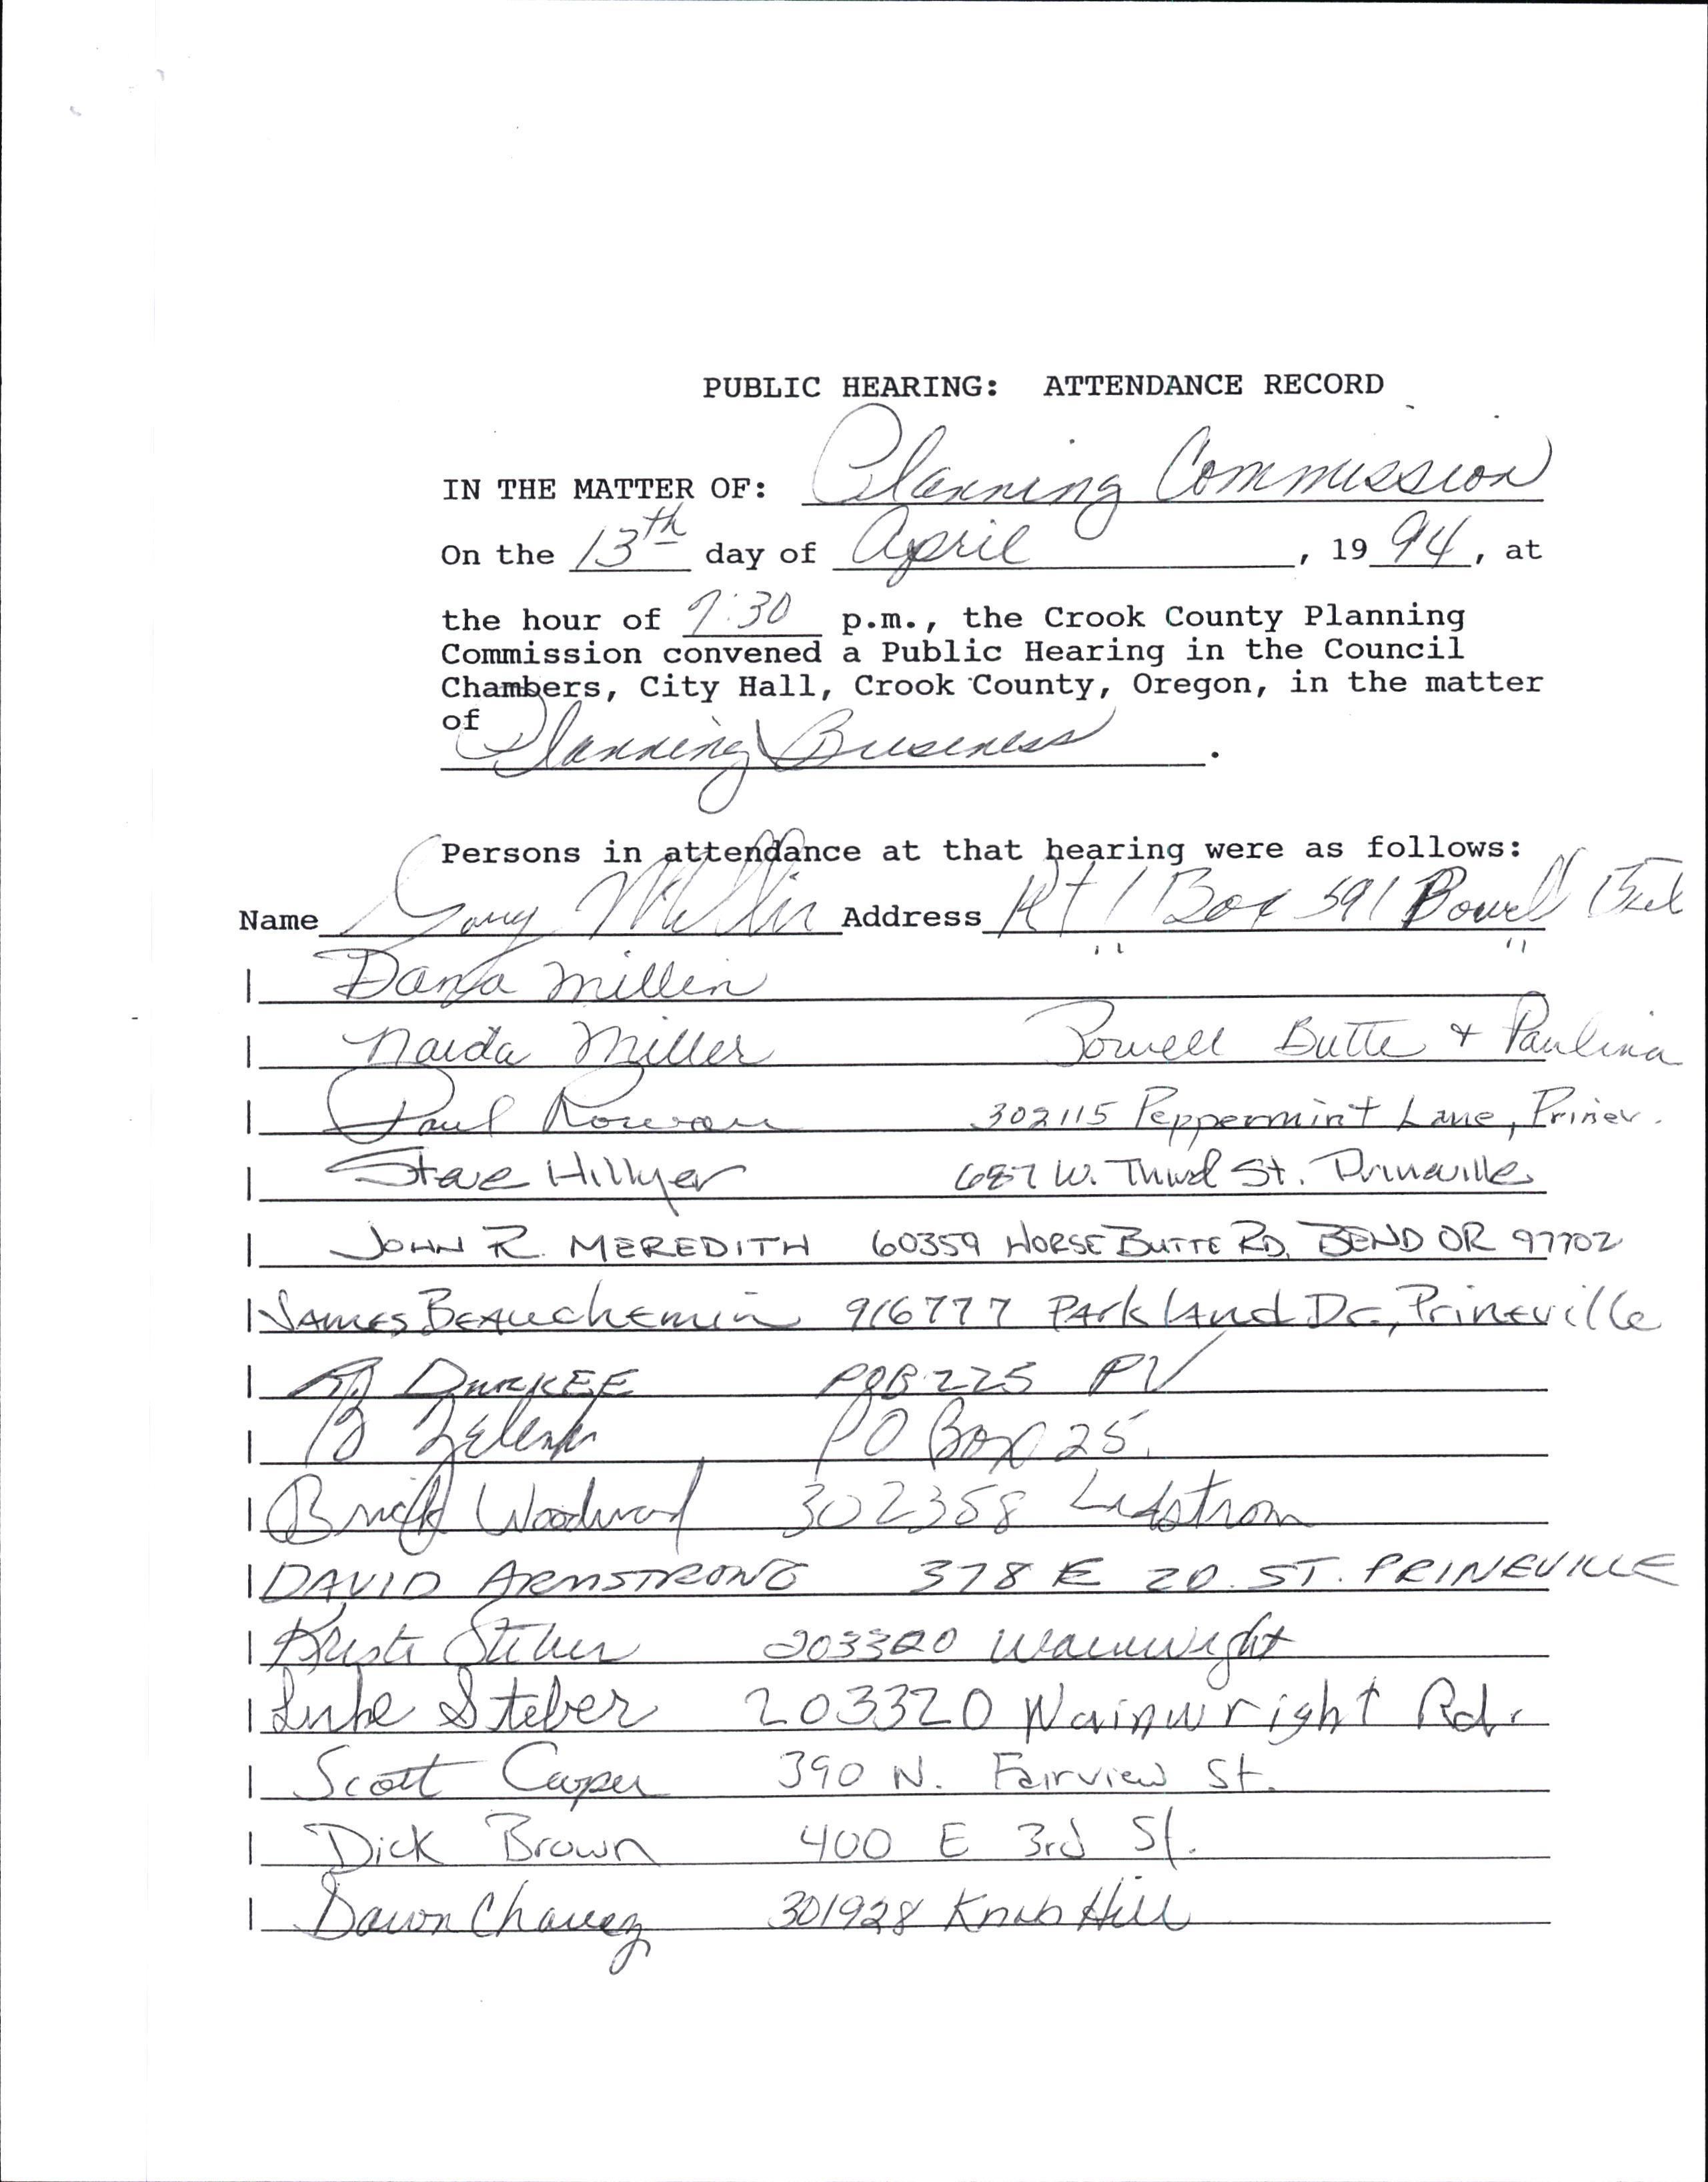 PUBLIC HEARING: ATTENDANCE RECORD
IN THE MATTER OF: Planning Commission
On the 13th day of April, 1994, at
the hour of 7:30 p.m., the Crook County Planning
Commission convened a Public Hearing in the Council
Chambers, City Hall, Crook County, Oregon, in the matter
of
Planning Business.
Persons in attendance at that hearing were as follows:
Name Gary Address Rt 1 Box 591 Powell
" "
Dana Millin
Naida Miller Powell Butte & Paulina
Paul Rowan 302115 Peppermint Lane, Prinev.
Steve Hillyer 687 W. Third St. Prineville
JOHN R. MEREDITH 60359 HORSE BUTTE RD. BEND OR 97702
JAMES BEAUchEmin 916777 PArklAnd Dr., Prineville
DURKEE POB 225 PV
PO Box 25
Woodward 302358
DAVID ARMSTRONG 378 E 20 ST. PRINEVILLE
203320 Wainwright
Luke Steber 203320 Wainwright Rd.
Scott Cooper 390 N. Fairview St.
Dick Brown 400 E 3rd St.
Dawn Chavez 301928 Knob Hill